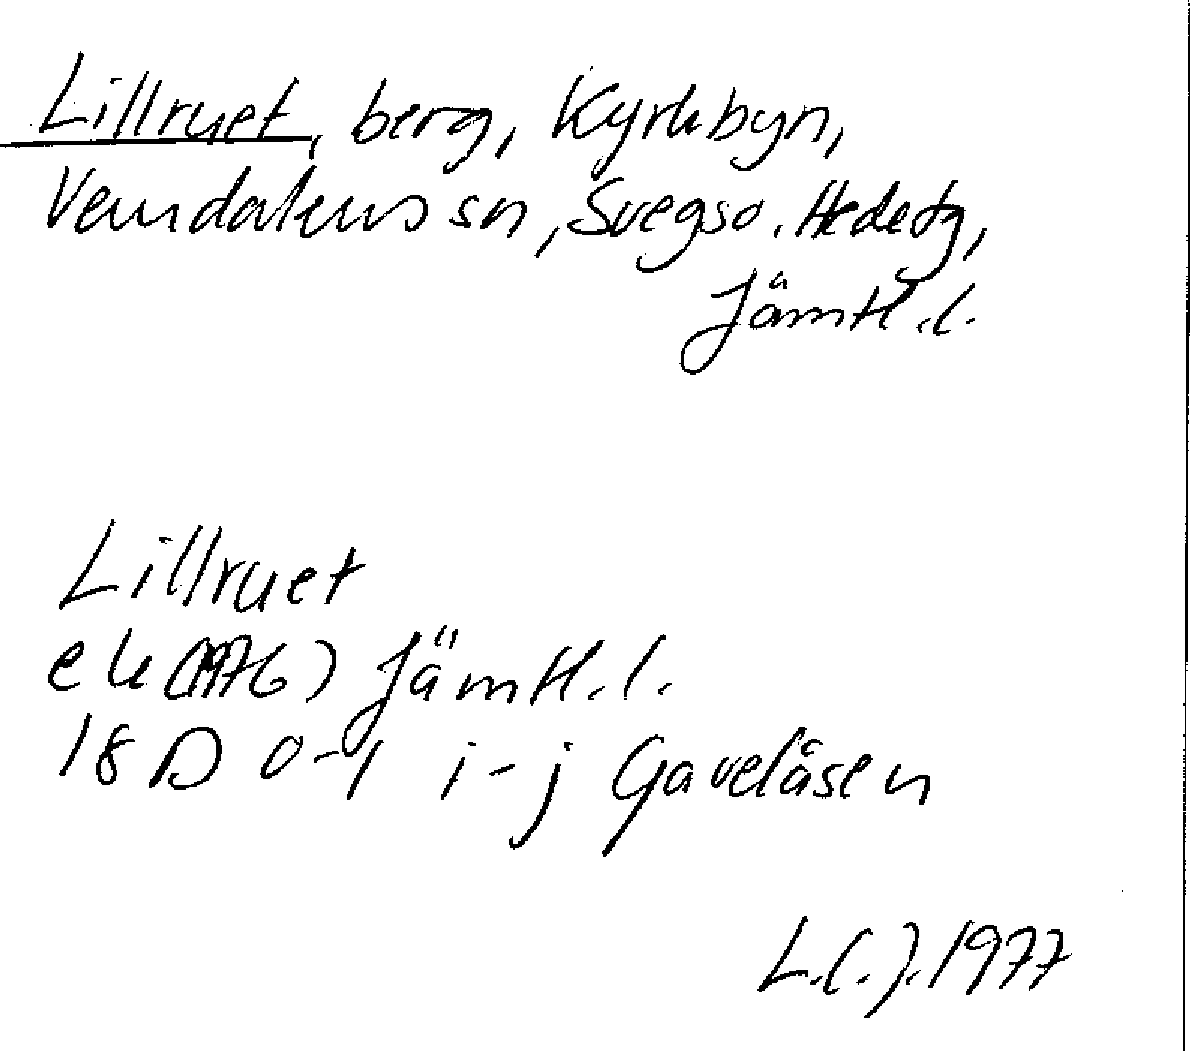 Lillruet, berg, Kyrkbyn,
Vemdalens sn, Svegs o. Hede tg,
Jämtl. l.
Lillruet
ek (1976) Jämtl. l.
18 D 0-1 i-j Gaveläsen
L.C.J. 1977